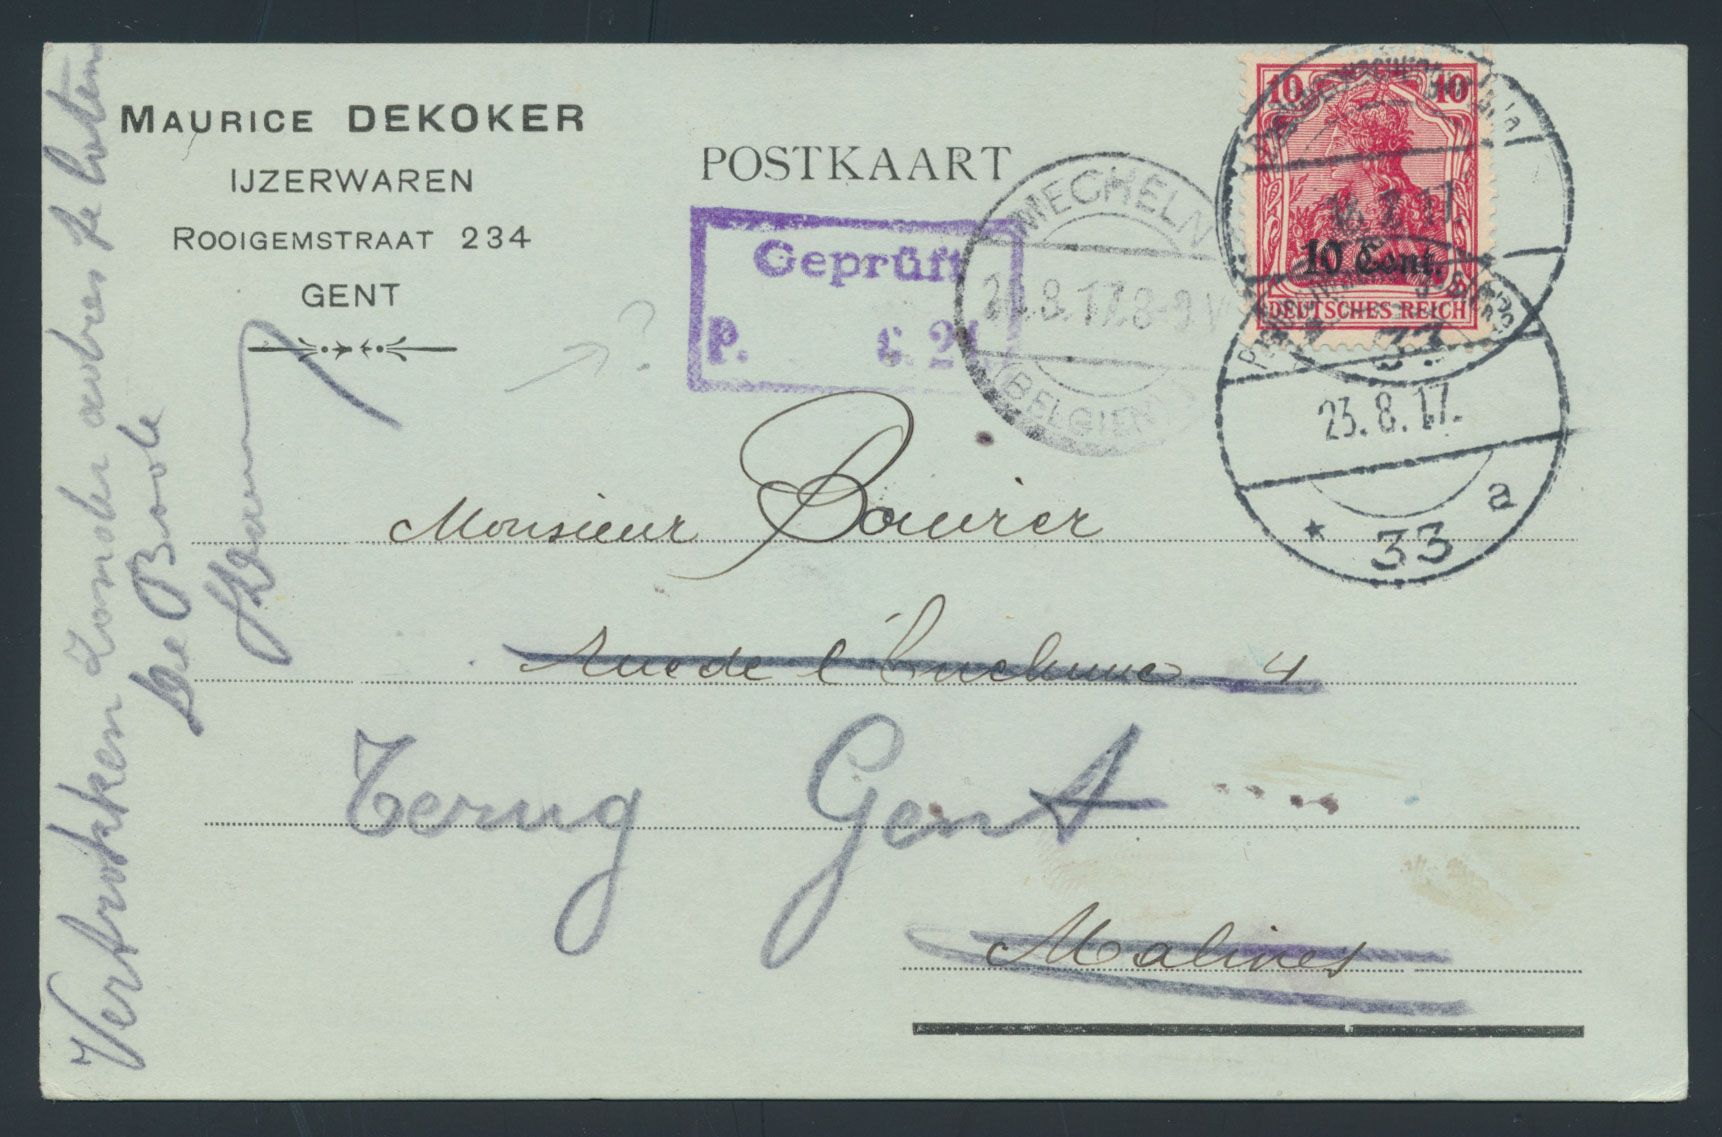 MAURICE DEKOKER
IJZERWAREN
ROOIGEMSTRAAT 234
GENT
POSTKAART
Geprüft
P. 2
MECHELN
8.17.8-9V
(BELGIEN)
10 10
10 Cent.
DEUTSCHES REICH
33
23.8.17.
a
* 33
?
Monsieur
Rue de l' 4
Terug Gent
Malines
Vertrokken zonder adres te laten
De Bode